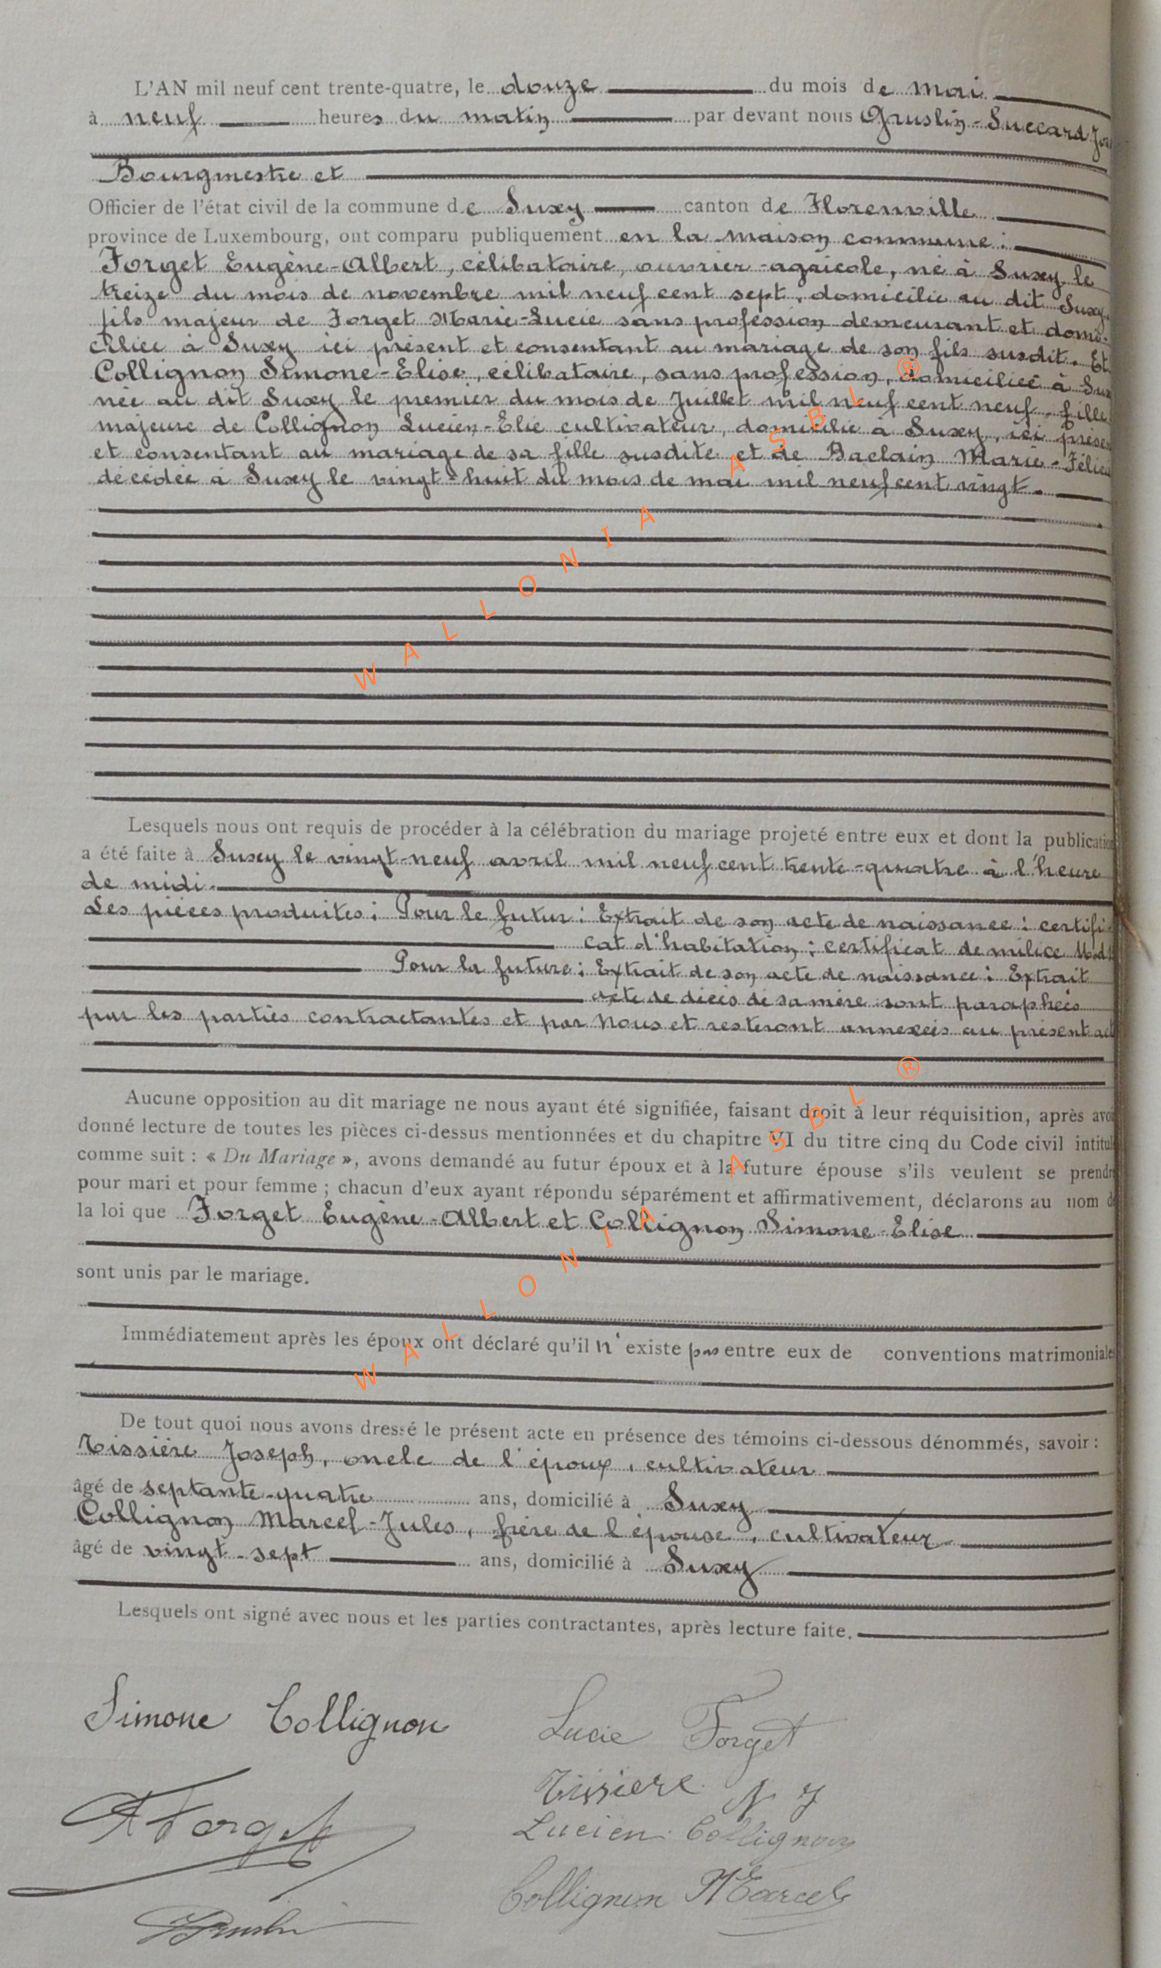 L'AN mil neuf cent trente-quatre, le douze du mois de mai
à neuf heures du matin par devant nous Gruslin-Succard
Bourgmestre et
Officier de l'état civil de la commune de Suxy canton de Florenville
province de Luxembourg, ont comparu publiquement en la maison commune :
Forget Eugène-Albert, célibataire, ouvrier-agricole, né à Suxy le
treize du mois de novembre mil neuf cent sept, domicilié au dit Suxy,
fils majeur de Forget Marie-Lucie sans profession demeurant et domi-
ciliée à Suxy ici présent et consentant au mariage de son fils susdit. Et
Collignon Simone-Elise, célibataire, sans profession, domiciliée à Sux
née au dit Suxy le premier du mois de Juillet mil neuf cent neuf, fille
majeure de Collignon Lucien-Elie cultivateur, domicilié à Suxy, ici prése
et consentant au mariage de sa fille susdite et de Baclain Marie-Félic
décédée à Suxy le vingt-huit du mois de mai mil neuf cent vingt.
WALLONIA ASBL ®
Lesquels nous ont requis de procéder à la célébration du mariage projeté entre eux et dont la publication
a été faite à Suxy le vingt-neuf avril mil neuf cent trente-quatre à l'heure
de midi.
Les pièces produites : Pour le futur : Extrait de son acte de naissance : certifi-
cat d'habitation ; certificat de milice
Pour la future : Extrait de son acte de naissance : Extrait
acte de décès de sa mère sont paraphées
par les parties contractantes et par Nous et resteront annexées au présent act
Aucune opposition au dit mariage ne nous ayant été signifiée, faisant droit à leur réquisition, après avo
donné lecture de toutes les pièces ci-dessus mentionnées et du chapitre VI du titre cinq du Code civil intitul
comme suit : « Du Mariage », avons demandé au futur époux et à la future épouse s'ils veulent se prendr
pour mari et pour femme ; chacun d'eux ayant répondu séparément et affirmativement, déclarons au nom d
la loi que Forget Eugène-Albert et Collignon Simone-Elise
sont unis par le mariage.
WALLONIA ASBL ®
Immédiatement après les époux ont déclaré qu'il n'existe pas entre eux de conventions matrimoniales
De tout quoi nous avons dressé le présent acte en présence des témoins ci-dessous dénommés, savoir :
Tissière Joseph, oncle de l'époux, cultivateur
âgé de septante-quatre ans, domicilié à Suxy
Collignon Marcel-Jules, frère de l'épouse, cultivateur
âgé de vingt-sept ans, domicilié à Suxy
Lesquels ont signé avec nous et les parties contractantes, après lecture faite.
Simone Collignon
Lucie Forget
Tissiere N J
A Forget
Lucien Collignon
Collignon Marcel
Gruslin